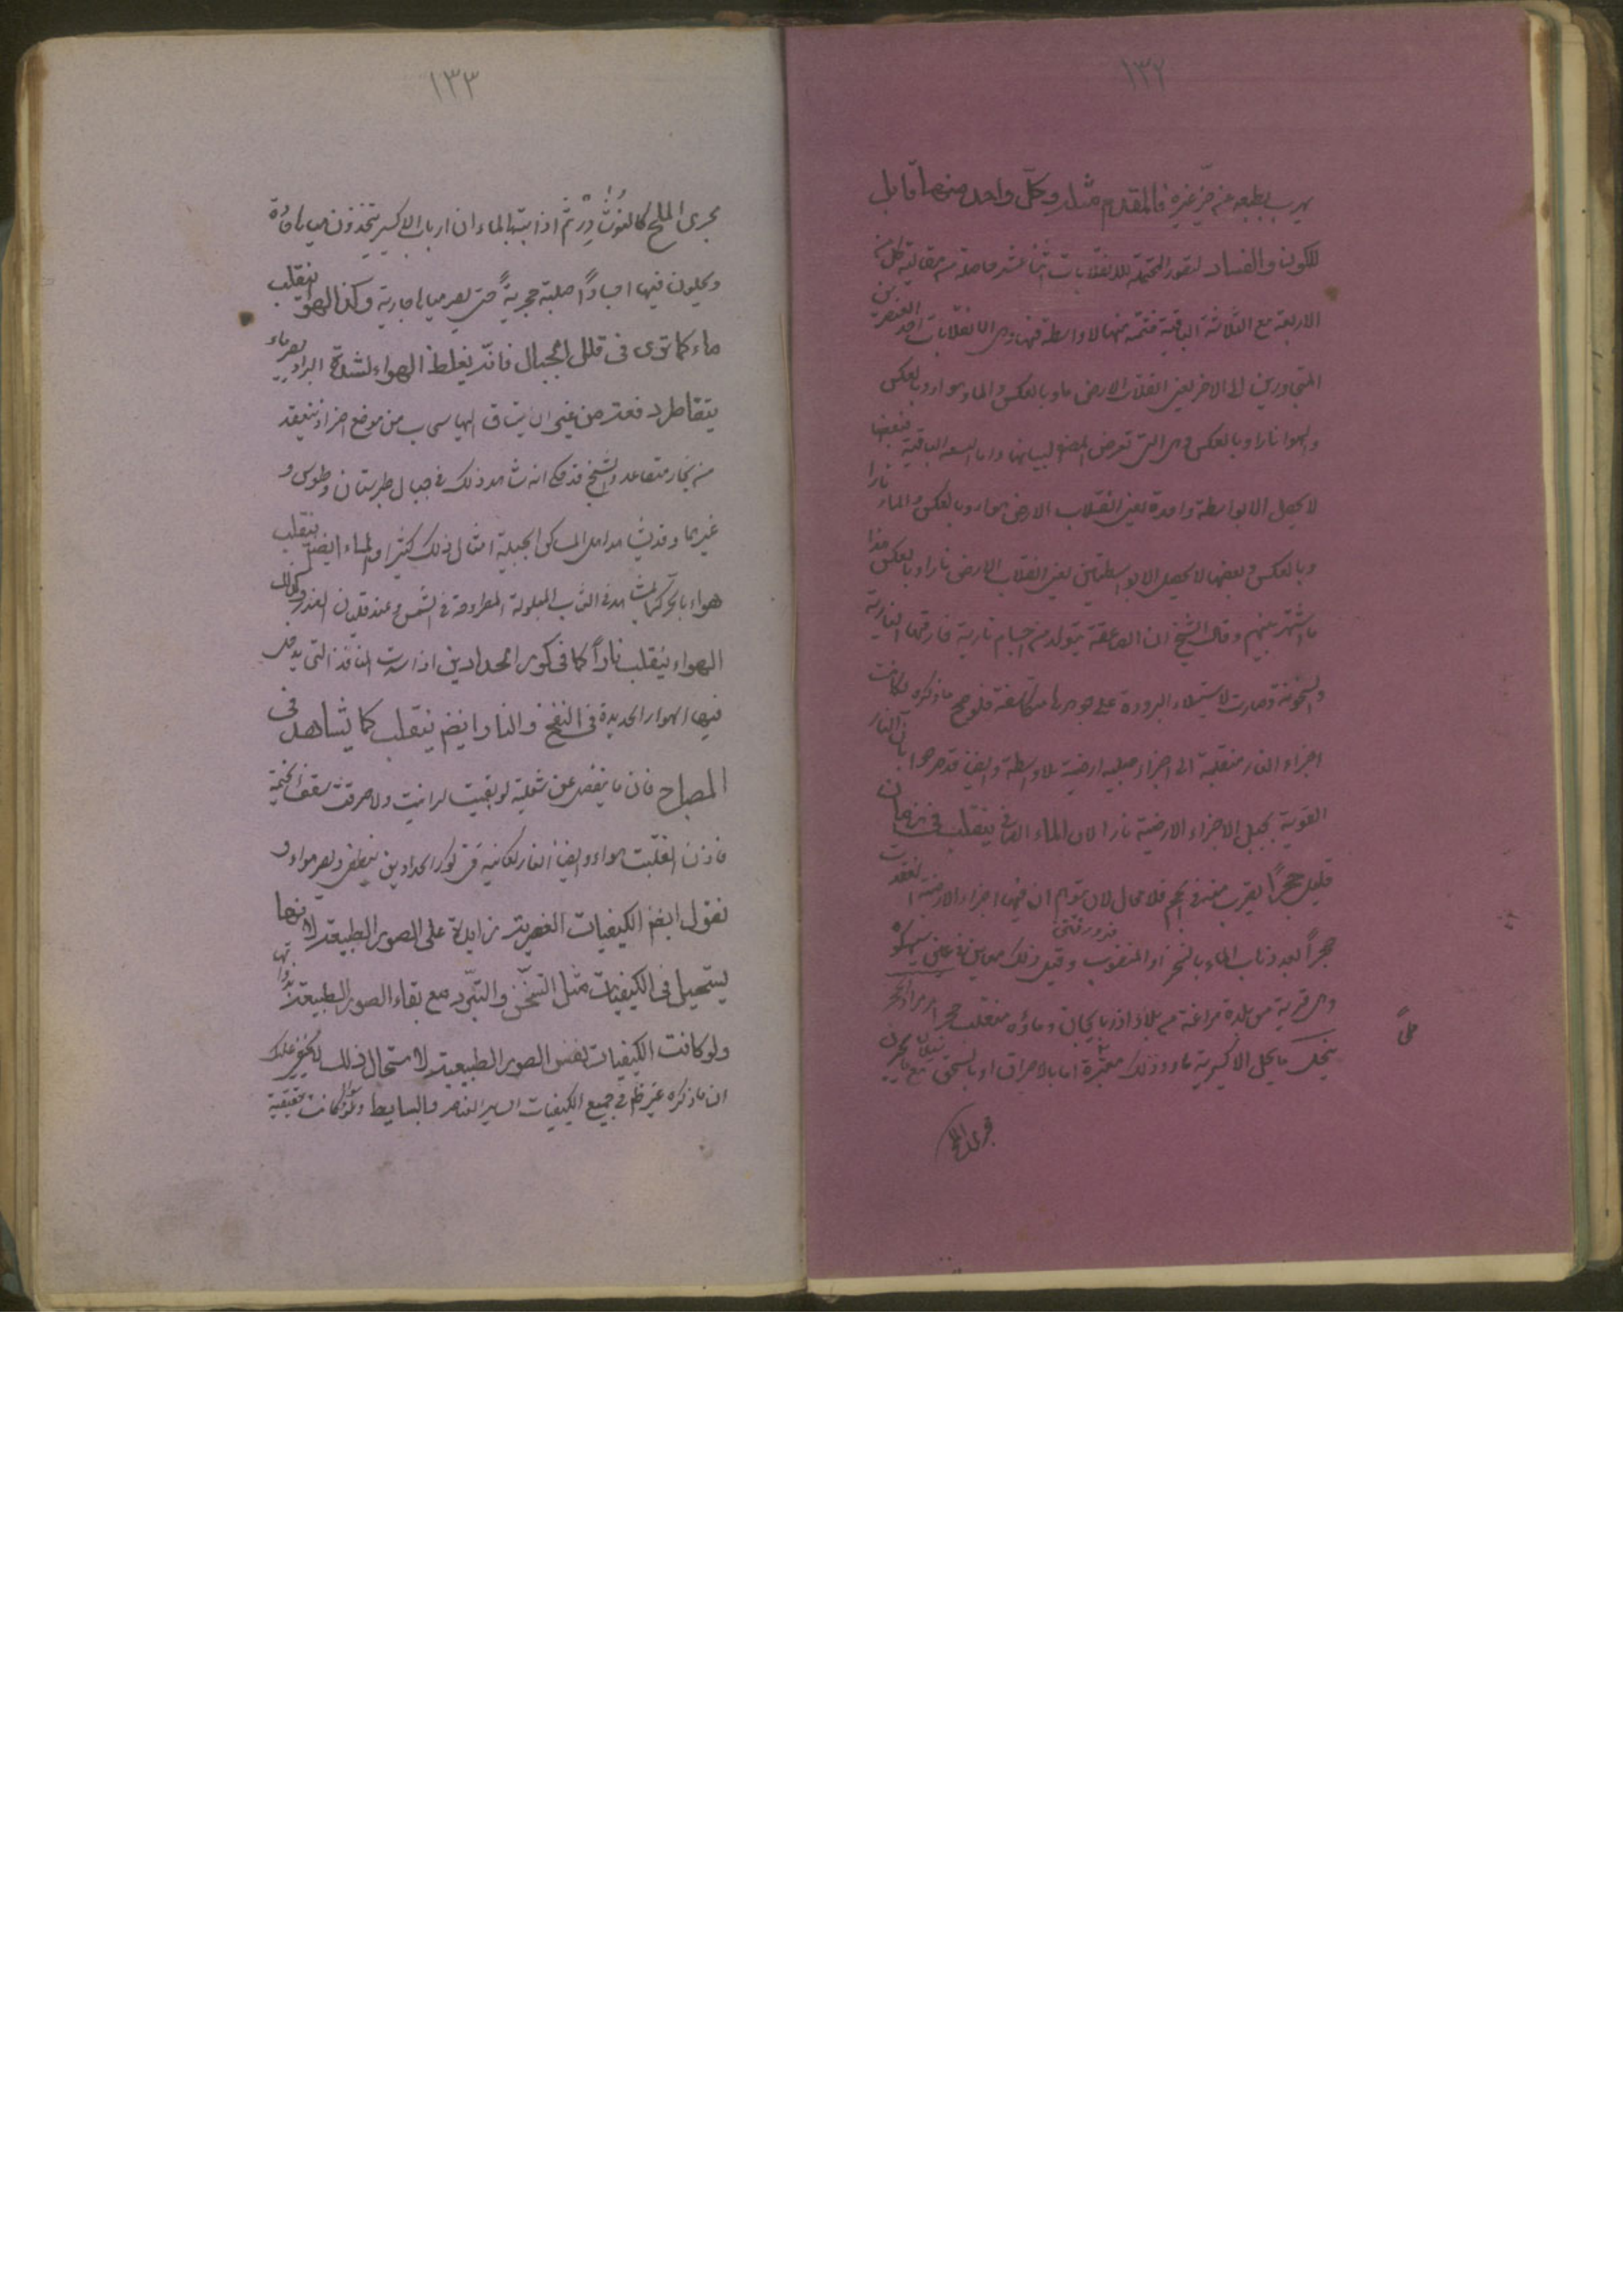 ١٣٢
يهرب بطبعه عن حيز غيره فالمقدم مثله وكل واحد منها قابل
للكون والفساد لصور المحتملة للانقلابات اثنا عشر حاصلة من مقايسة كل من
الاربعة مع الثلاثة الباقية فستة منها لا واسطة فيها وهى انقلابات احد العنصرين
المتجاورين الى الاخر يعنى انقلاب الارض ماء وبالعكس والماء هواء وبالعكس
والهواء نارا وبالعكس وهى التى تعرض المصنف لبيانها واما الستة الباقية فبعضها
لا يحصل الا بواسطة واحدة يعنى انقلاب الارض هواء وبالعكس والماء نارا
وبالعكس وبعضها لا يحصل الا بواسطتين يعنى انقلاب الارض نارا وبالعكس هذا
ما اشتهر بينهم وقال الشيخ ان الصاعقة يتولد من اجسام نارية فارقتها
والسخونة وصارت لاستيلاء البرودة على جوهرها متكاثفة فلو صح ما ذكره لكانت
اجزاء النار منقلبة الى اجزاء صلبة ارضية بلا واسطة وايضا قد صرحوا بان النار
القوية يحيل الاجزاء الارضية نارا لان الماء الصافى ينقلب فى زمان
قليل حجرا يقرب منه فى الحجم فلا مجال لان يتوهم ان فيها اجزاء الارضية انعقدت
حجرا بعد ذهاب الماء بالتبخر او النضوب وقيل ذلك معاين فى عين سيهكوه
وهى قرية من بلدة مراغة من بلاد اذربايجان وماؤه منقلب حجرا
ينحل ما يحل الاكسيرية ماء وذلك اما بالاحراق او بالسحق مع ما يجرى
مجرى الملح
١٣٣
مجرى الملح كالنوشادر ثم اذابتها بالماء ان ارباب الاكسير يتخذون مياها حادة
ويحلون فيها اجسادا صلبة حجرية حتى يصير مياها جارية وكذا الهواء ينقلب
ماء كما ترى فى قلل الجبال فانه يغلظ الهواء لشدة البرد ويصير ماء
يتقاطر دفعة من غير ان ينساق اليها سحاب من موضع اخر او ينعقد
من بخار متصاعد والشيخ قد حكى انه شاهد ذلك فى جبال طبرستان وطوس و
غيرها وقد شاهد اهل المساكن الجبلية امثال ذلك كثيرا والماء ايضا ينقلب
هواء بالحر كما يشاهد فى الثياب المبلولة المطروحة فى الشمس وعند غليان القدر وكذلك
الهواء ينقلب نارا كما فى كور الحدادين اذا سدت المنافذ التى يدخل
فيها الهواء الجديدة فى النفخ والنار ايضا ينقلب كما يشاهد فى
المصباح فان ما ينفصل عن شعلته لو بقيت لرايت ولاحرقت سقف الخيمة
فاذن انقلبت هواء وايضا النار الكائنة فى كور الحدادين ينطفى ويصير هواء و
نقول ايضا الكيفيات العنصرية زايدة على الصور الطبيعية لانها
يستحيل فى الكيفيات مثل التسخن والتبرد مع بقاء الصور الطبيعية بذواتها
ولو كانت الكيفيات نفس الصور الطبيعية لاستحال ذلك
ان ما ذكره غير ظاهر فى جميع الكيفيات لساير العناصر فالبسايط سواء كانت حقيقية